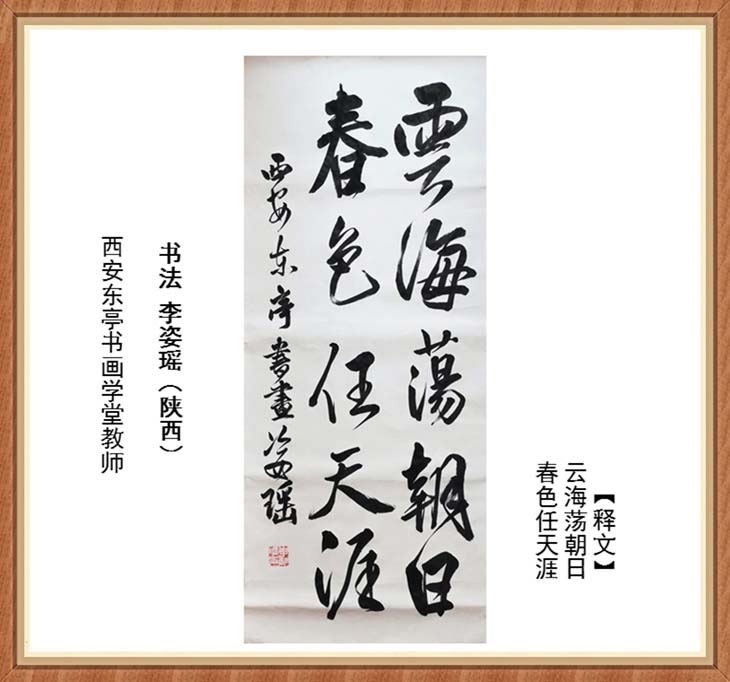 【释文】
云海荡朝日
春色任天涯
雲海蕩朝日
春色任天涯
西安东亭書畫姿瑶
书法 李姿瑶（陕西）
西安东亭书画学堂教师